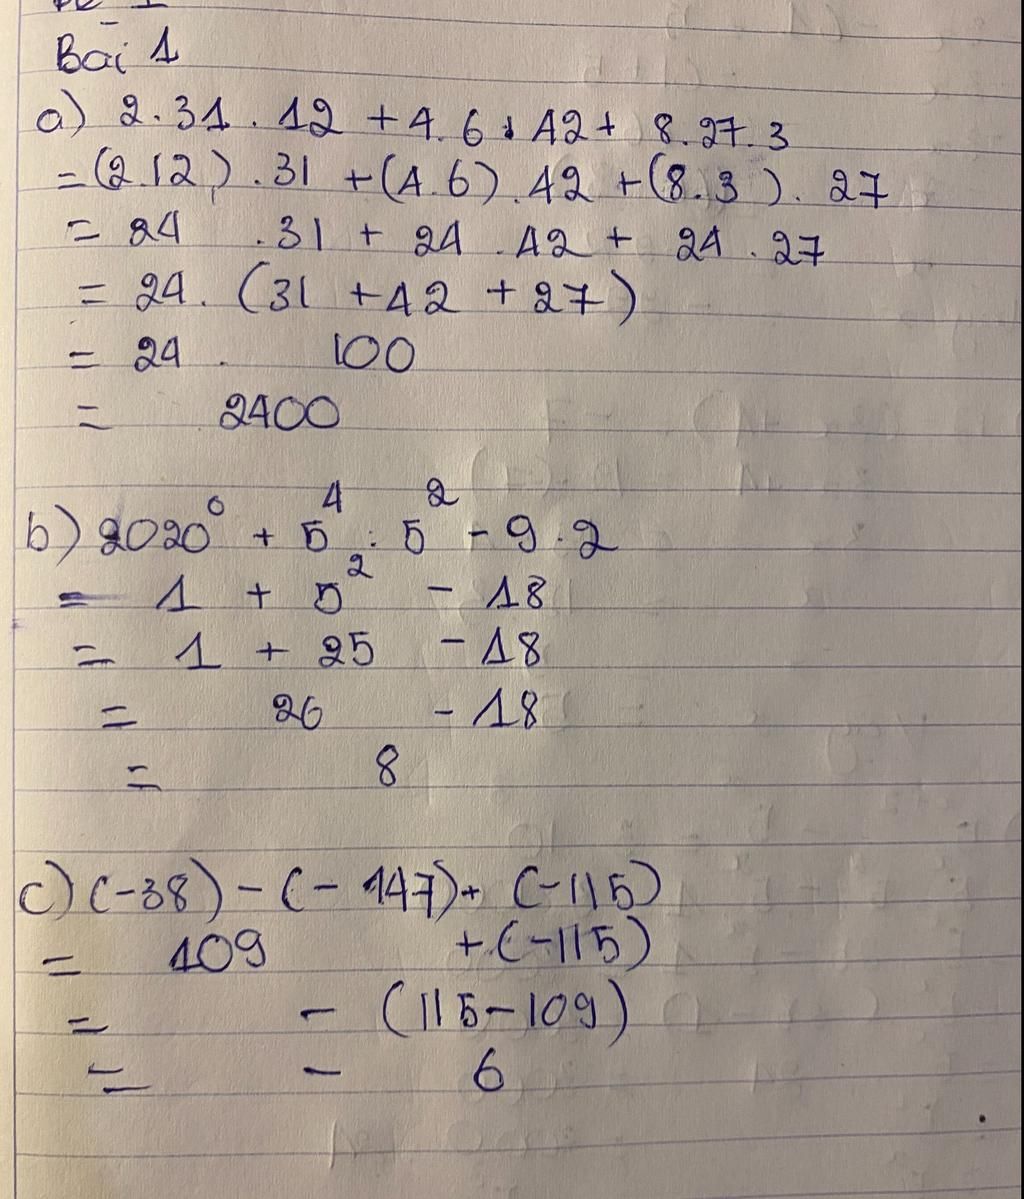 Bài 1
a) 2.31.12 + 4.6.42 + 8.27.3
= (2.12).31 + (4.6).42 + (8.3).27
= 24.31 + 24.42 + 24.27
= 24.(31 + 42 + 27)
= 24.100
= 2400
b) 2020⁰ + 5⁴ : 5² - 9.2
= 1 + 5² - 18
= 1 + 25 - 18
= 26 - 18
= 8
c) (-38) - (-147) + (-115)
= 109 + (-115)
= - (115 - 109)
= - 6